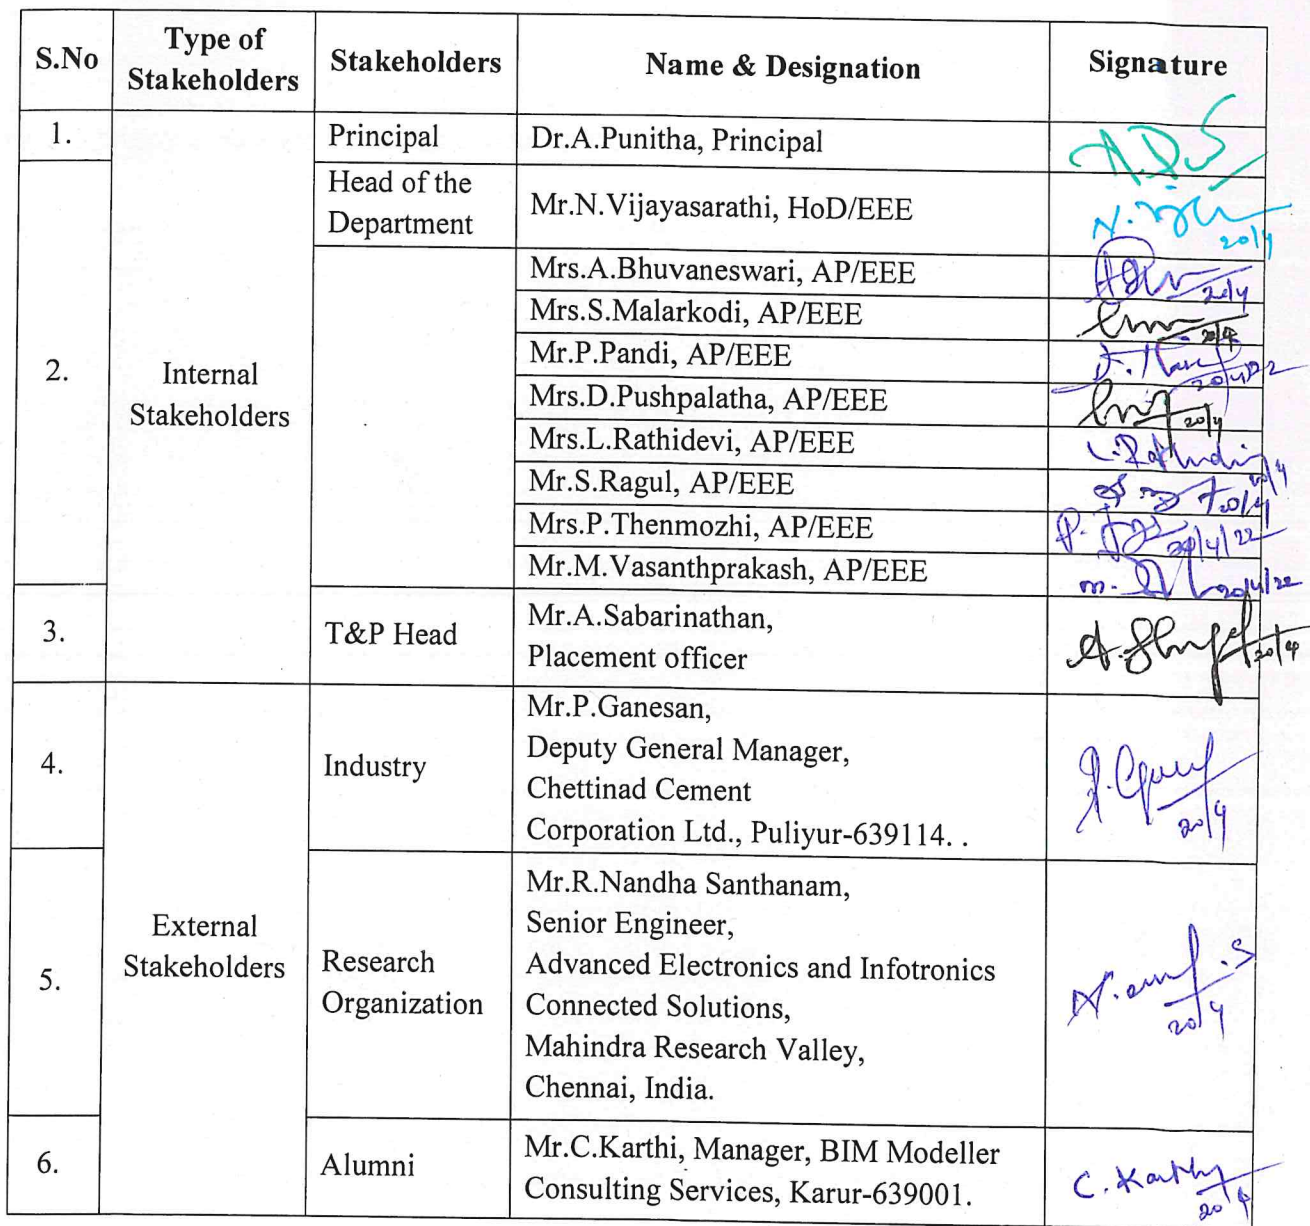 S.No Type of Stakeholders Stakeholders Name & Designation Signature
1. Principal Dr.A.Punitha, Principal
Head of the
Department Mr.N.Vijayasarathi, HoD/EEE 20/4
Mrs.A.Bhuvaneswari, AP/EEE 20/4
Mrs.S.Malarkodi, AP/EEE 20/4
2. Internal
Stakeholders
Mr.P.Pandi, AP/EEE 20/4/22
Mrs.D.Pushpalatha, AP/EEE 20/4
Mrs.L.Rathidevi, AP/EEE 20/4
Mr.S.Ragul, AP/EEE 20/4
Mrs.P.Thenmozhi, AP/EEE 20/4/22
Mr.M.Vasanthprakash, AP/EEE 20/4/22
3. T&P Head Mr.A.Sabarinathan,
Placement officer 20/4
4. Industry Mr.P.Ganesan,
Deputy General Manager,
Chettinad Cement
Corporation Ltd., Puliyur-639114. . 20/4
External
Stakeholders
5. Research
Organization
Mr.R.Nandha Santhanam,
Senior Engineer,
Advanced Electronics and Infotronics
Connected Solutions,
Mahindra Research Valley,
Chennai, India. 20/4
6. Alumni Mr.C.Karthi, Manager, BIM Modeller
Consulting Services, Karur-639001. 20/4